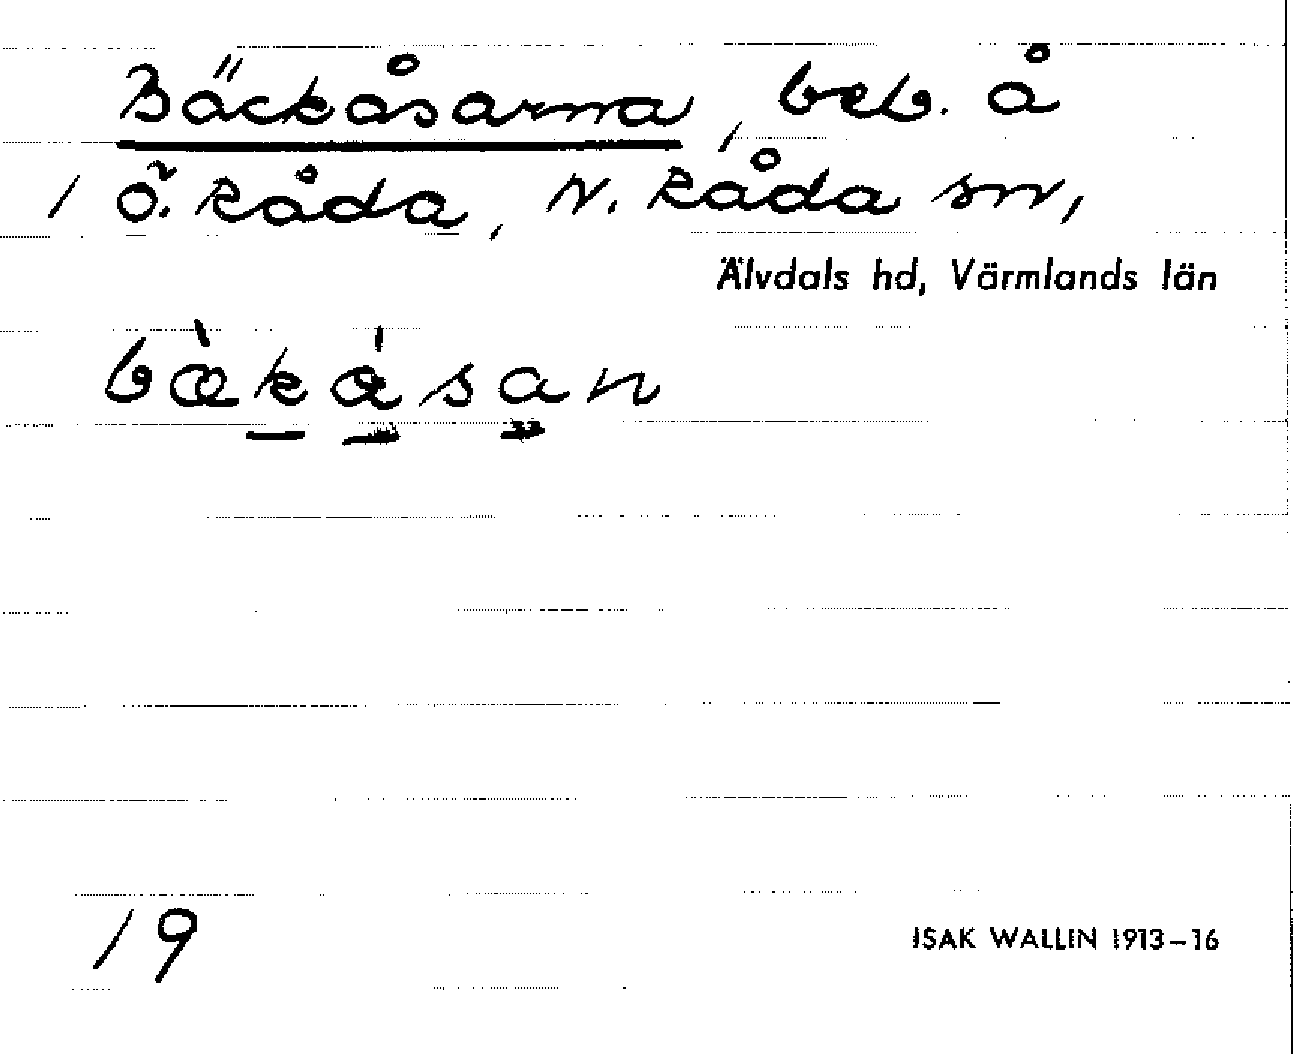 Bäckåsarna, beb. å
1 Ö. Råda, N. Råda sn,
Älvdals hd, Värmlands län
bæ̀kåsan
19
ISAK WALLIN 1913–16